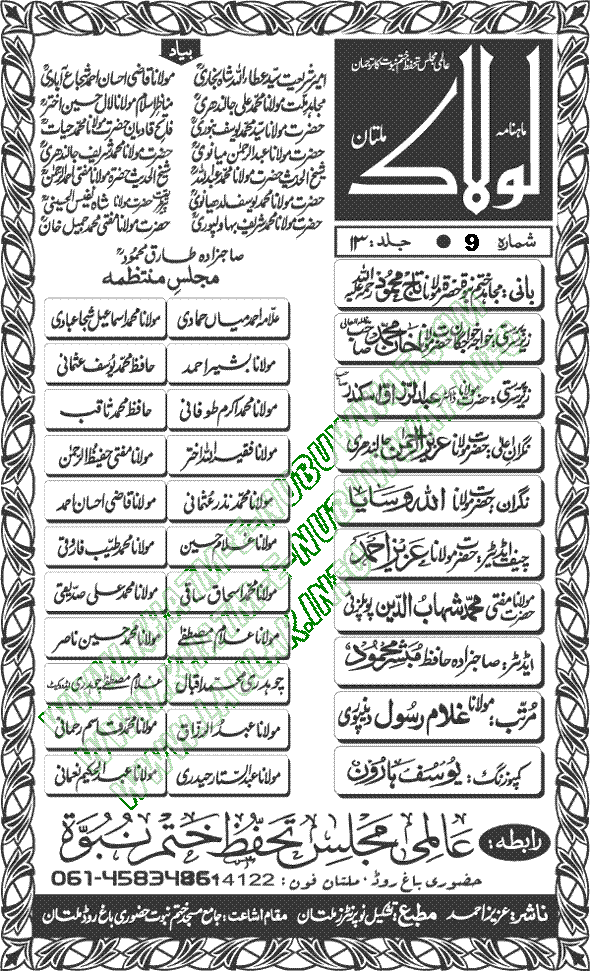 عالمی مجلس تحفظ ختم نبوت کا ترجمان
ماہنامہ
لولاک
ملتان
شمارہ 9 ● جلد: ۱۳
بانی: مجاہد ختم نبوۃ حضرۃ مولانا تاج محمود رحمۃ اللہ علیہ
زیر سرپرستی: خواجہ خواجگان حضرت مولانا خان محمد صاحب مدظلہ العالی
زیر سرپرستی: حضرت مولانا ڈاکٹر عبدالرزاق اسکندر صاحب
نگران اعلیٰ: حضرت مولانا عزیز الرحمٰن جالندھری
نگران: حضرت مولانا اللہ وسایا
چیف ایڈیٹر: حضرت مولانا عزیز احمد
حضرت مولانا مفتی محمد شہاب الدین پوپلزئی
ایڈیٹر: صاحبزادہ حافظ مبشر محمود
مرتب: مولانا غلام رسول دینپوری
کمپوزنگ: یوسف ہارون
بیاد
امیر شریعت سید عطاء اللہ شاہ بخاریؒ مولانا قاضی احسان احمد شجاع آبادیؒ
مجاہد ملت مولانا محمد علی جالندھریؒ مناظر اسلام مولانا لال حسین اخترؒ
حضرت مولانا سید محمد یوسف بنوریؒ فاتح قادیان حضرت مولانا محمد حیاتؒ
حضرت مولانا عبدالرحمٰن میانویؒ حضرت مولانا محمد شریف جالندھریؒ
شیخ الحدیث حضرت مولانا محمد عبداللہؒ شیخ الحدیث حضرۃ مولانا مفتی احمد الرحمٰنؒ
حضرت مولانا محمد یوسف لدھیانویؒ حضرت مولانا شاہ نفیس الحسینیؒ
حضرت مولانا محمد شریف بہاولپوریؒ حضرت مولانا مفتی محمد جمیل خانؒ
صاحبزادہ طارق محمودؒ
مجلس منتظمہ
علامہ احمد میاں حمادی مولانا محمد اسماعیل شجاعبادی
مولانا بشیر احمد حافظ محمد یوسف عثمانی
مولانا محمد اکرم طوفانی حافظ محمد ثاقب
مولانا فقیر اللہ اختر مولانا مفتی حفیظ الرحمٰن
مولانا محمد نذر عثمانی مولانا قاضی احسان احمد
مولانا غلام حسین مولانا محمد طیب فاروقی
مولانا محمد اسحاق ساقی مولانا محمد علی صدیقی
مولانا غلام مصطفےٰ مولانا محمد حسین ناصر
چوہدری محمد اقبال غلام مصطفےٰ چوہدری ایڈووکیٹ
مولانا عبدالرزاق مولانا محمد قاسم رحمانی
مولانا عبدالستار حیدری مولانا عبدالحکیم نعمانی
رابطہ: عالمی مجلس تحفظ ختم نبوۃ
حضوری باغ روڈ، ملتان فون: 061-4583486
ناشر: عزیز احمد مطبع: تشکیل نو پرنٹرز ملتان مقام اشاعت: جامع مسجد ختم نبوت حضوری باغ روڈ ملتان